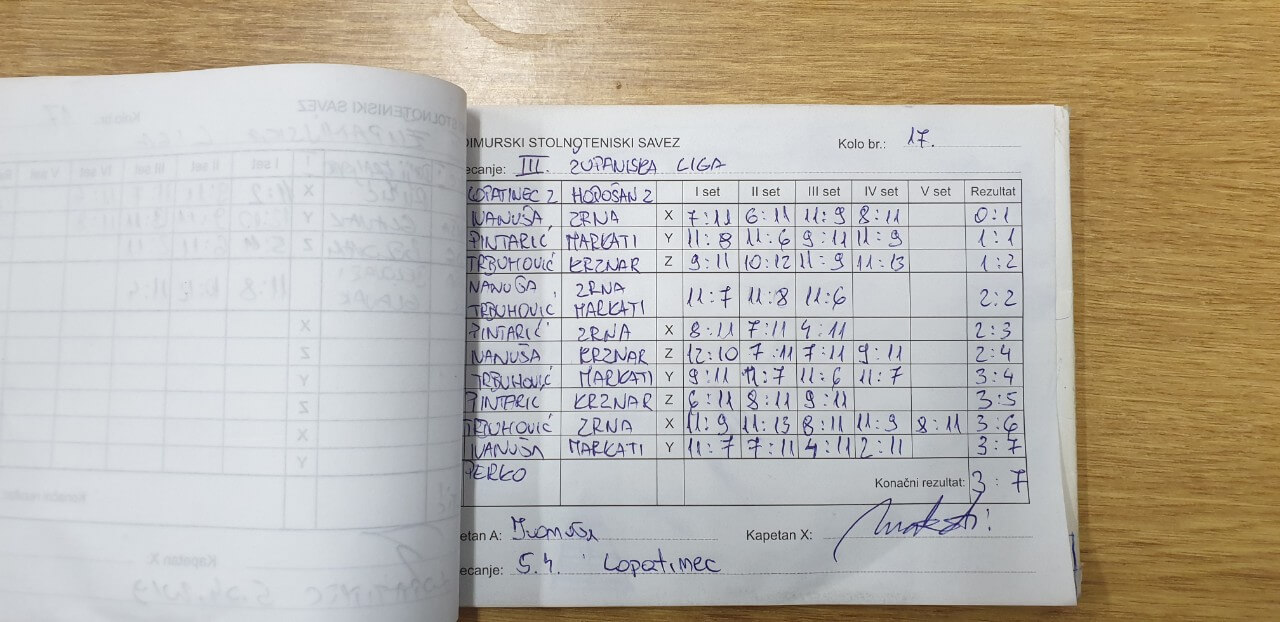 DIMURSKI STOLNOTENISKI SAVEZ Kolo br.: 17.
ecanje: III. ŽUPANIJSKA LIGA
LOPATINEC 2 HODOŠAN 2 I set II set III set IV set V set Rezultat
IVANUŠA ZRNA X 7:11 6:11 11:9 8:11 0:1
PINTARIĆ MARKATI Y 11:8 11:6 9:11 11:9 1:1
TRBUHOVIĆ KRZNAR Z 9:11 10:12 11:9 11:13 1:2
IVANUŠA ZRNA
TRBUHOVIĆ MARKATI 11:7 11:8 11:6 2:2
PINTARIĆ ZRNA X 8:11 7:11 4:11 2:3
IVANUŠA KRZNAR Z 12:10 7:11 7:11 9:11 2:4
TRBUHOVIĆ MARKATI Y 9:11 11:7 11:6 11:7 3:4
PINTARIĆ KRZNAR Z 6:11 8:11 9:11 3:5
TRBUHOVIĆ ZRNA X 11:9 11:13 8:11 11:9 8:11 3:6
IVANUŠA MARKATI Y 11:7 7:11 4:11 2:11 3:7
PERKO Konačni rezultat: 3:7
etan A: Ivanuša Kapetan X:
ecanje: 5.4. Lopatinec